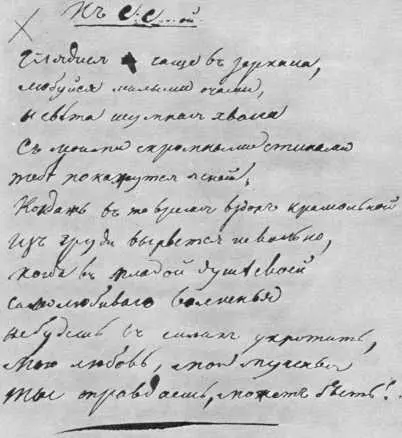 Къ С. С.....ой.
Глядися чаще въ зеркала,
любуйся милыми очами,
и света шумная хвала
Съ моими скромными стихами
тебѣ покажутся ясней.
Когдажъ въ то время вздохъ крамольной
Изъ груди вырвется невольно,
когда въ младой душѣ своей
самолюбиваго волненья
не будешь въ силахъ укротить,
Мою любовь, мои мученья
Ты оправдаешь, можетъ быть!.